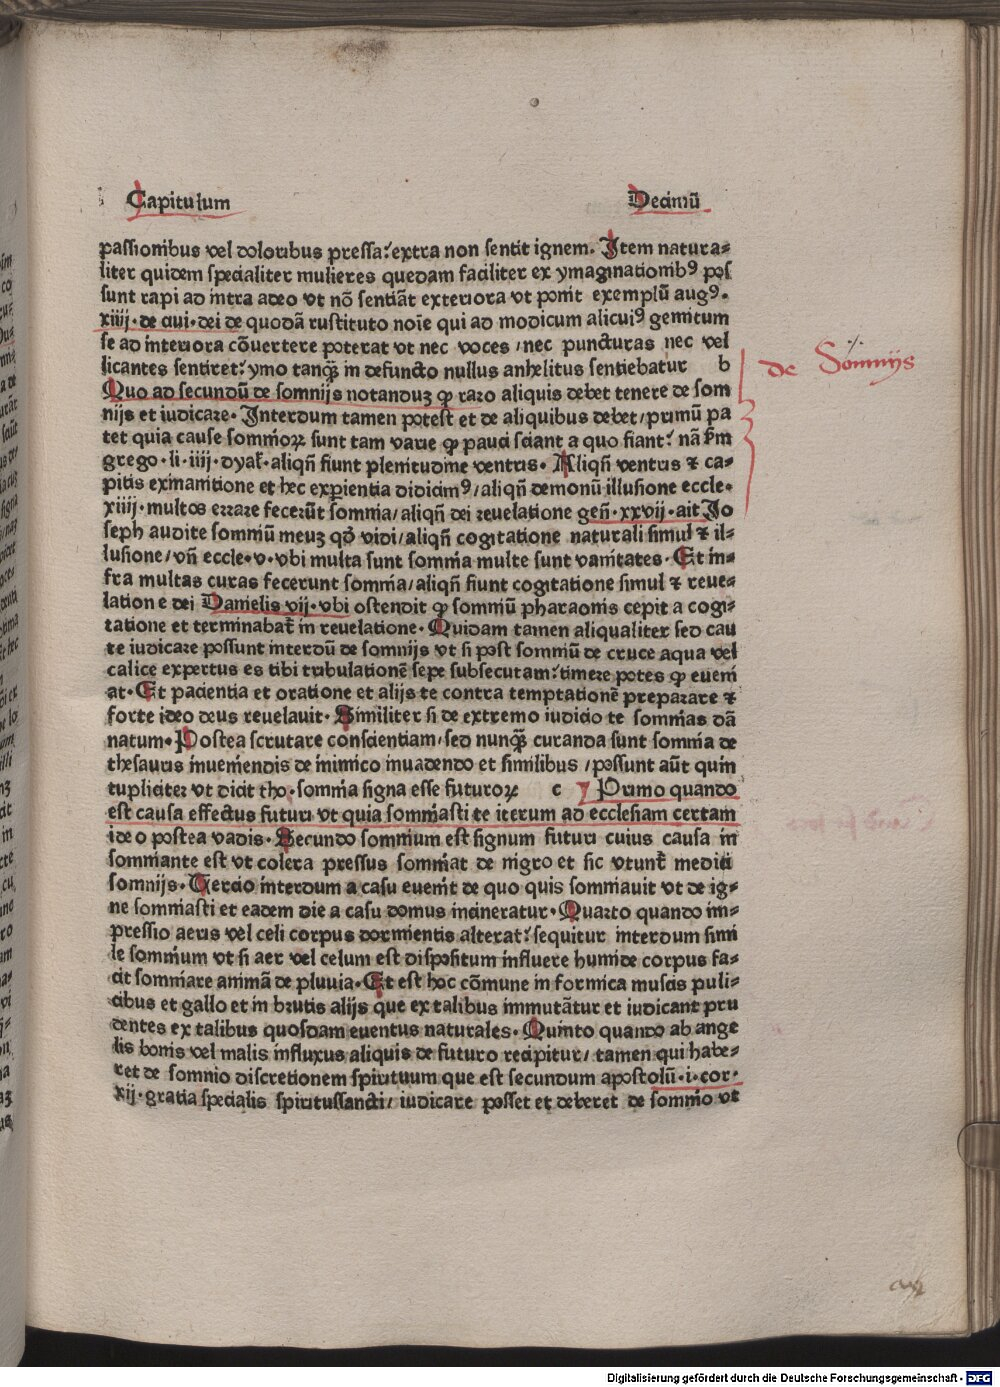 Capitulum Decimū
passionibus vel doloribus pressa: extra non sentit ignem. Item natura⸗
liter quidem specialiter mulieres quedam faciliter ex ymaginationibꝰ pos
sunt rapi ad intra adeo vt nō sentiāt exteriora vt ponit exemplū augꝰ.
xiiij. de ciui. dei de quodā rustituto noīe qui ad modicum alicuiꝰ gemitum
se ad interiora cōuertere poterat vt nec voces / nec puncturas nec vel
licantes sentiret: ymo tanqȝ in defuncto nullus anhelitus sentiebatur b
Quo ad secundū de somnijs notanduꝫ ꝙ raro aliquis debet tenere de som
nijs et iudicare. Interdum tamen potest et de aliquibus debet / primū pa
tet quia cause somnioꝝ sunt tam varie ꝙ pauci sciant a quo fiant: nā km̄
grego. li. iiij. dyal̄. aliqn̄ fiunt plenitudine ventris. Aliqn̄ ventris ⁊ ca⸗
pitis exinanitione et hec experientia didicimꝰ / aliqn̄ demonū illusione eccle.
xiiij. multos errare fecerūt somnia / aliqn̄ dei reuelatione gen̄. xxvij. ait Io
seph audite somniū meuꝫ qd̄ vidi / aliqn̄ cogitatione naturali simul ⁊ il⸗
lusione / vn̄ eccle. v. vbi multa sunt somnia multe sunt vanitates. Et in⸗
fra multas curas fecerunt somnia / aliqn̄ fiunt cogitatione simul ⁊ reue⸗
lation e dei Danielis vij. vbi ostendit ꝙ somniū pharaonis cepit a cogi⸗
tatione et terminabat̄ in reuelatione. Quidam tamen aliqualiter sed cau
te iudicare possunt interdū de somnijs vt si post somniū de cruce aqua vel
calice expertus es tibi tribulationē sepe subsecutam: timere potes ꝙ eueni
at. Et pacientia et oratione et alijs te contra temptationē preparare ⁊
forte ideo deus reuelauit. Similiter si de extremo iudicio te somnias dā
natum. Postea scrutare conscientiam / sed nunqȝ curanda sunt somnia de
thesauris inueniendis de inimico inuadendo et similibus / possunt aūt quin
tupliciter vt dicit tho. somnia signa esse futuroꝝ c Primo quando
est causa effectus futuri vt quia somniasti te iterum ad ecclesiam certam
ideo postea vadis. Secundo somnium est signum futuri cuius causa in
somniante est vt colera pressus somniat de nigro et sic vtunt̄ medici
somnijs. Tercio interdum a casu euenit de quo quis somniauit vt de ig⸗
ne somniasti et eadem die a casu domus incineratur. Quarto quando im⸗
pressio aeris vel celi corpus dormientis alterat: sequitur interdum simi
le somnium vt si aer vel celum est dispositum influere humide corpus fa⸗
cit somniare animā de pluuia. Et est hoc cōmune in formica muscis puli⸗
cibus et gallo et in brutis alijs que ex talibus immutātur et iudicant pru
dentes ex talibus quosdam euentus naturales. Quinto quando ab ange
lis bonis vel malis influxus aliquis de futuro recipitur / tamen qui habe⸗
ret de somnio discretionem spirituum que est secundum apostolū. i. cor.
xij. gratia specialis spiritussancti / iudicare posset et deberet de somnio vt
de Somnijs
Digitalisierung gefördert durch die Deutsche Forschungsgemeinschaft - DFG